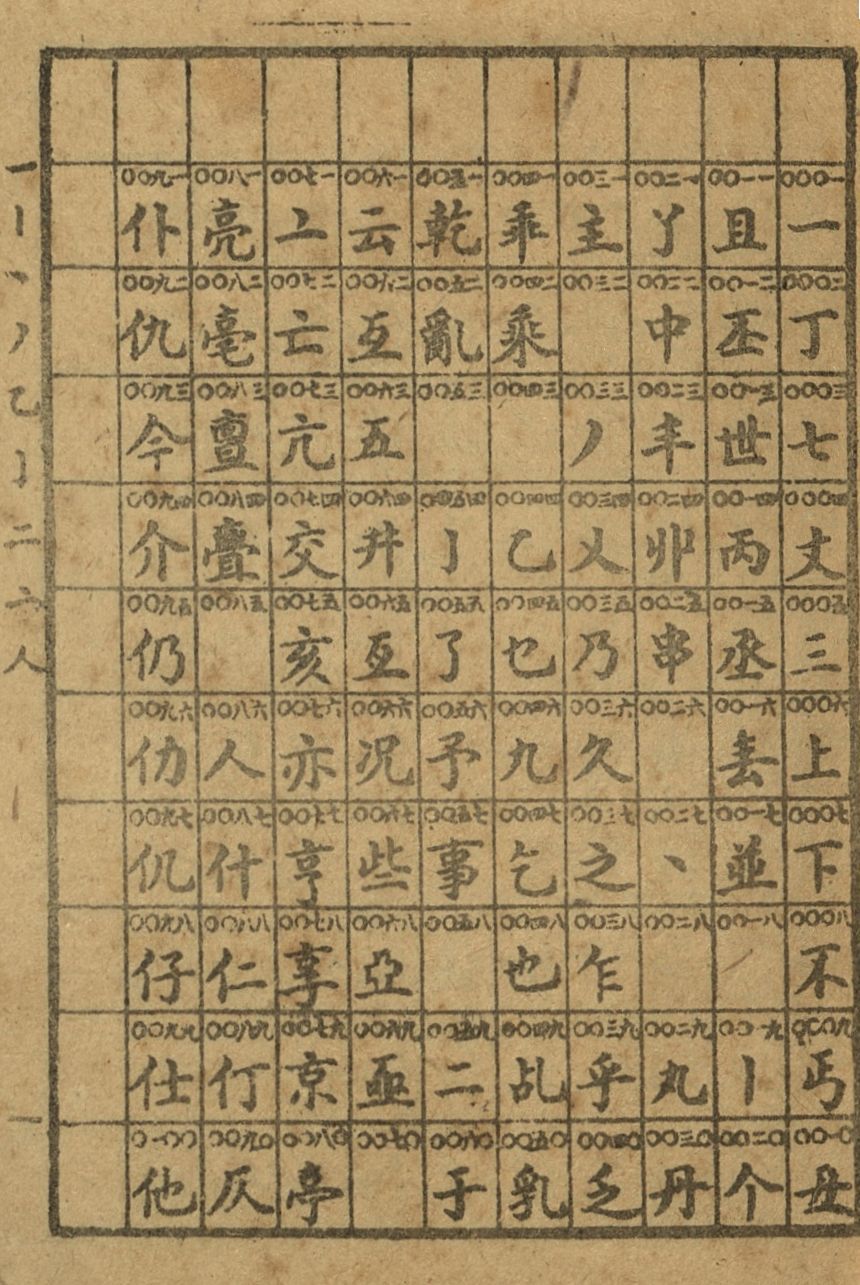 〇〇〇一 一 〇〇〇二 丁 〇〇〇三 七 〇〇〇四 丈 〇〇〇五 三 〇〇〇六 上 〇〇〇七 下 〇〇〇八 不 〇〇〇九 丐 〇〇一〇 丑
〇〇一一 且 〇〇一二 丕 〇〇一三 世 〇〇一四 丙 〇〇一五 丞 〇〇一六 丟 〇〇一七 並 〇〇一八 〇〇一九 丨 〇〇二〇 个
〇〇二一 丫 〇〇二二 中 〇〇二三 丰 〇〇二四 丱 〇〇二五 串 〇〇二六 〇〇二七 丶 〇〇二八 〇〇二九 丸 〇〇三〇 丹
〇〇三一 主 〇〇三二 〇〇三三 丿 〇〇三四 乂 〇〇三五 乃 〇〇三六 久 〇〇三七 之 〇〇三八 乍 〇〇三九 乎 〇〇四〇 乏
〇〇四一 乖 〇〇四二 乘 〇〇四三 〇〇四四 乙 〇〇四五 乜 〇〇四六 九 〇〇四七 乞 〇〇四八 也 〇〇四九 乩 〇〇五〇 乳
〇〇五一 乾 〇〇五二 亂 〇〇五三 〇〇五四 亅 〇〇五五 了 〇〇五六 予 〇〇五七 事 〇〇五八 〇〇五九 二 〇〇六〇 于
〇〇六一 云 〇〇六二 互 〇〇六三 五 〇〇六四 井 〇〇六五 亙 〇〇六六 况 〇〇六七 些 〇〇六八 亞 〇〇六九 亟 〇〇七〇
〇〇七一 亠 〇〇七二 亡 〇〇七三 亢 〇〇七四 交 〇〇七五 亥 〇〇七六 亦 〇〇七七 亨 〇〇七八 享 〇〇七九 京 〇〇八〇 亭
〇〇八一 亮 〇〇八二 亳 〇〇八三 亶 〇〇八四 亹 〇〇八五 〇〇八六 人 〇〇八七 什 〇〇八八 仁 〇〇八九 仃 〇〇九〇 仄
〇〇九一 仆 〇〇九二 仇 〇〇九三 今 〇〇九四 介 〇〇九五 仍 〇〇九六 仂 〇〇九七 仉 〇〇九八 仔 〇〇九九 仕 〇一〇〇 他
一丨丶丿乙亅二亠人 一